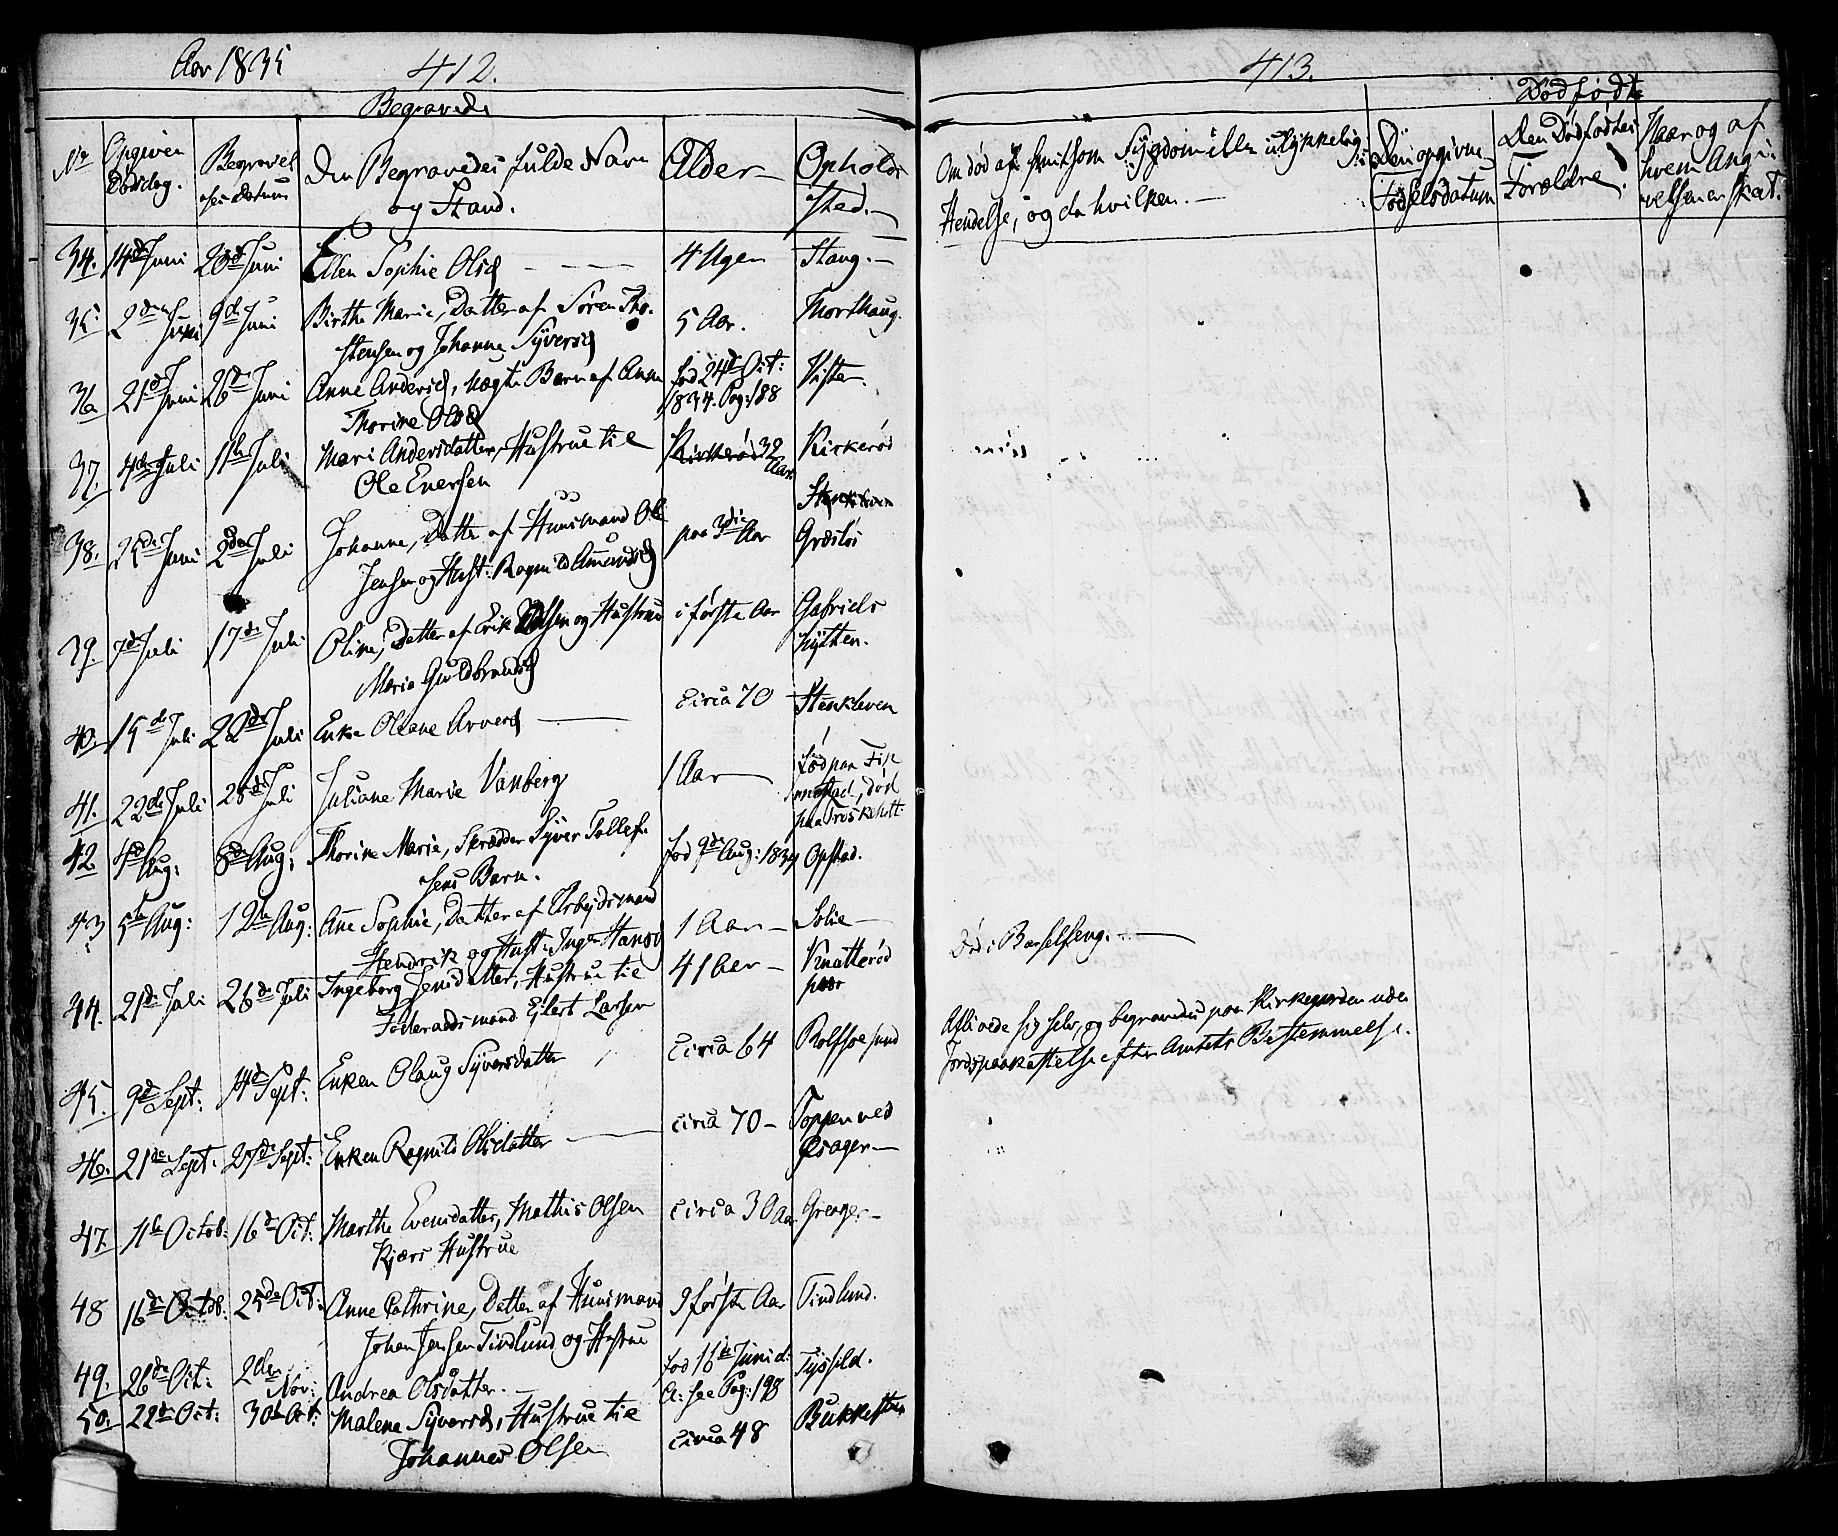 Aar 1835
412.
Begravede
No
Opgiven Dødsdag.
Begravelsens Datum
Den Begravedes fulde Navn og Stand.
Alder
Opholdssted.
34. 14de Juni 20de Juni Ellen Sophie Olsd 4 Uger Stang.
35. 2den Juni 9de Juni Birthe Marie, Datter af Søren Tho- 5 Aar. Northaug.
stensen og Johanne Syversd
36. 21de Juni 26de Juni Anne Andersd, uægte Barn af Anne fød 24de Oct: Vister.
Thorine Olsd 1834. Pag: 188
37. 4de Juli 11te Juli Mari Andersdatter, Hustrue til 32 Aar Kirkerød
Ole Evensen
38. 25de Juni 2den Juli Johanne, Datter af Huusmand Ole paa 3die Aar Græsløs
Jensen og Hust: Ragnild Amundsd
39. 7de Juli 17de Juli Oline, Datter af Erik Olsen og Hustrue i første Aar Gabriels
Maria Guldbrandsd hytten.
40. 15de Juli 22de Juli Enke Oleane Arvesd circa 70 Stenkleven
41. 22de Juli 28de Juli Juliane Marie Vanberg 1 Aar fød paa
død
paa
42 4de Aug: 8de Aug: Thorine Marie, Skrædder Syver Tollef- fød 9de Aug: 1834 Opstad.
sens Barn.
43 5te Aug: 12te Aug: Ane Sophie, Datter af Arbejdsmand 1 Aar Solie
Hendrik og Hust: Inger Hansd
44. 21de Juli 26de Juli Ingeborg Jensdatter, Hustrue til 41 Aar Knatterød
Føderaadsmand Ejlert Larsen
45. 9de Sept: 14de Sept: Enken Olaug Syversdatter circa 64 Rolfsøesund
46. 21de Sept. 27de Sept: Enken Ragnild Olsdatter circa 70 Toppen ved
47. 11te Octob: 16de Oct: Marthe Evensdatter, Mathis Olsen circa 30 Aar Greager
Kjærs Hustrue
48 16de Octob: 25de Oct: Anne Cathrine, Datter af Huusmand I første Aar Tindlund.
Johan Jensen Tindlund og Hustrue
49. 26de Oct: 2den Nov: Andrea Olsdatter. fød 16de Juni d: Tysfeld.
A: see Pag: 198
50. 22de Oct: 30te Oct: Malene Syversd, Hustrue til circa 48 Bukkesten
Johannes Olsen
413.
Dødfødte
Om død af smitsom Sygdom eller ulykkelig
Hendelse, og da hvilken.
Den opgivne Fødselsdatum
Den Dødfødtes Forældre.
Naar og af hvem Angivelsen er skeet.
Død i Barselseng.
Aflivede sig selv, og begravedes paa Kirkegaarden uden
Jordspaakastelse efter Amtets Bestemmelse.